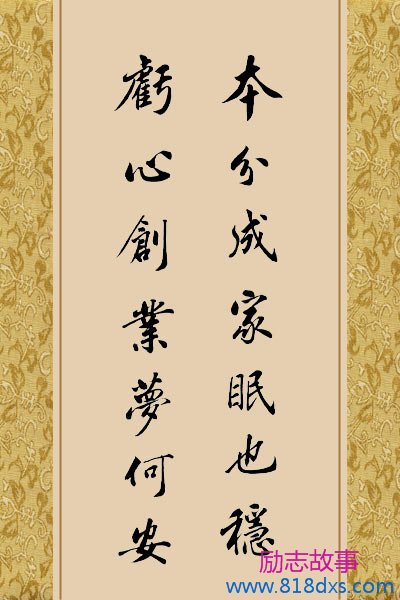 本分成家眠也穩
虧心創業夢何安
励志故事
www.818dxs.com